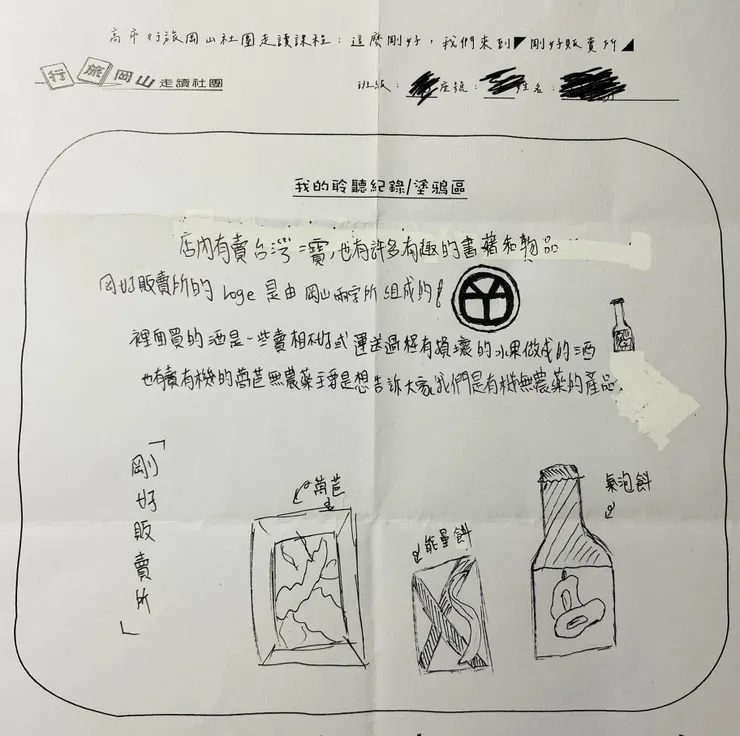 高市行旅岡山社團走讀課程：這麼剛好，我們來到◤剛好販賣所◢
行旅岡山走讀社團
班級： 座號： 姓名：
我的聆聽紀錄/塗鴉區
店內有賣台灣二寶,也有許多有趣的書籍和物品
岡好販賣所的 loge 是由岡山兩字所組成的!
裡面買的酒是一些賣相不好或運送過程有損壞的水果做成的酒
也有賣有機的萵苣無農藥主要是想告訴大家我們是有機無農藥的產品.
「剛好販賣所」
萵苣
能量餅
氣泡飲